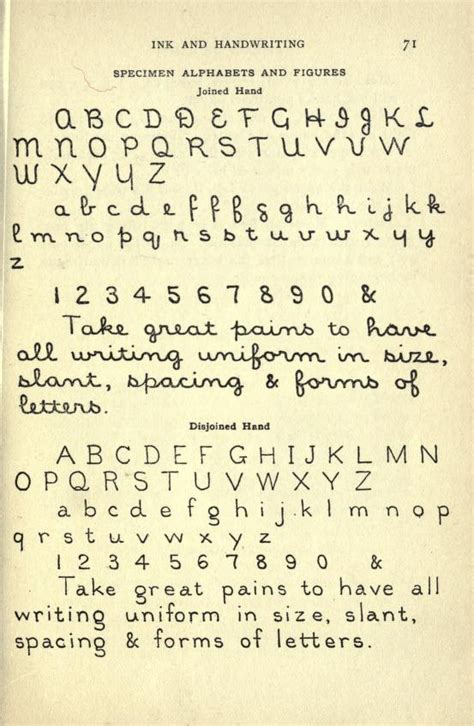 INK AND HANDWRITING 71
SPECIMEN ALPHABETS AND FIGURES
Joined Hand
A B C D D E F G H I J K L
M N O P Q R S T U V U W
W X Y Y Z
a b c d e f f f g g h h i j k k
l m n o p q r s b t u v w x y y
z
1 2 3 4 5 6 7 8 9 0 &
Take great pains to have
all writing uniform in size,
slant, spacing & forms of
letters.
Disjoined Hand
A B C D E F G H I J K L M N
O P Q R S T U V W X Y Z
a b c d e f g h i j k l m n o p
q r s t u v w x y z
1 2 3 4 5 6 7 8 9 0 &
Take great pains to have all
writing uniform in size, slant,
spacing & forms of letters.